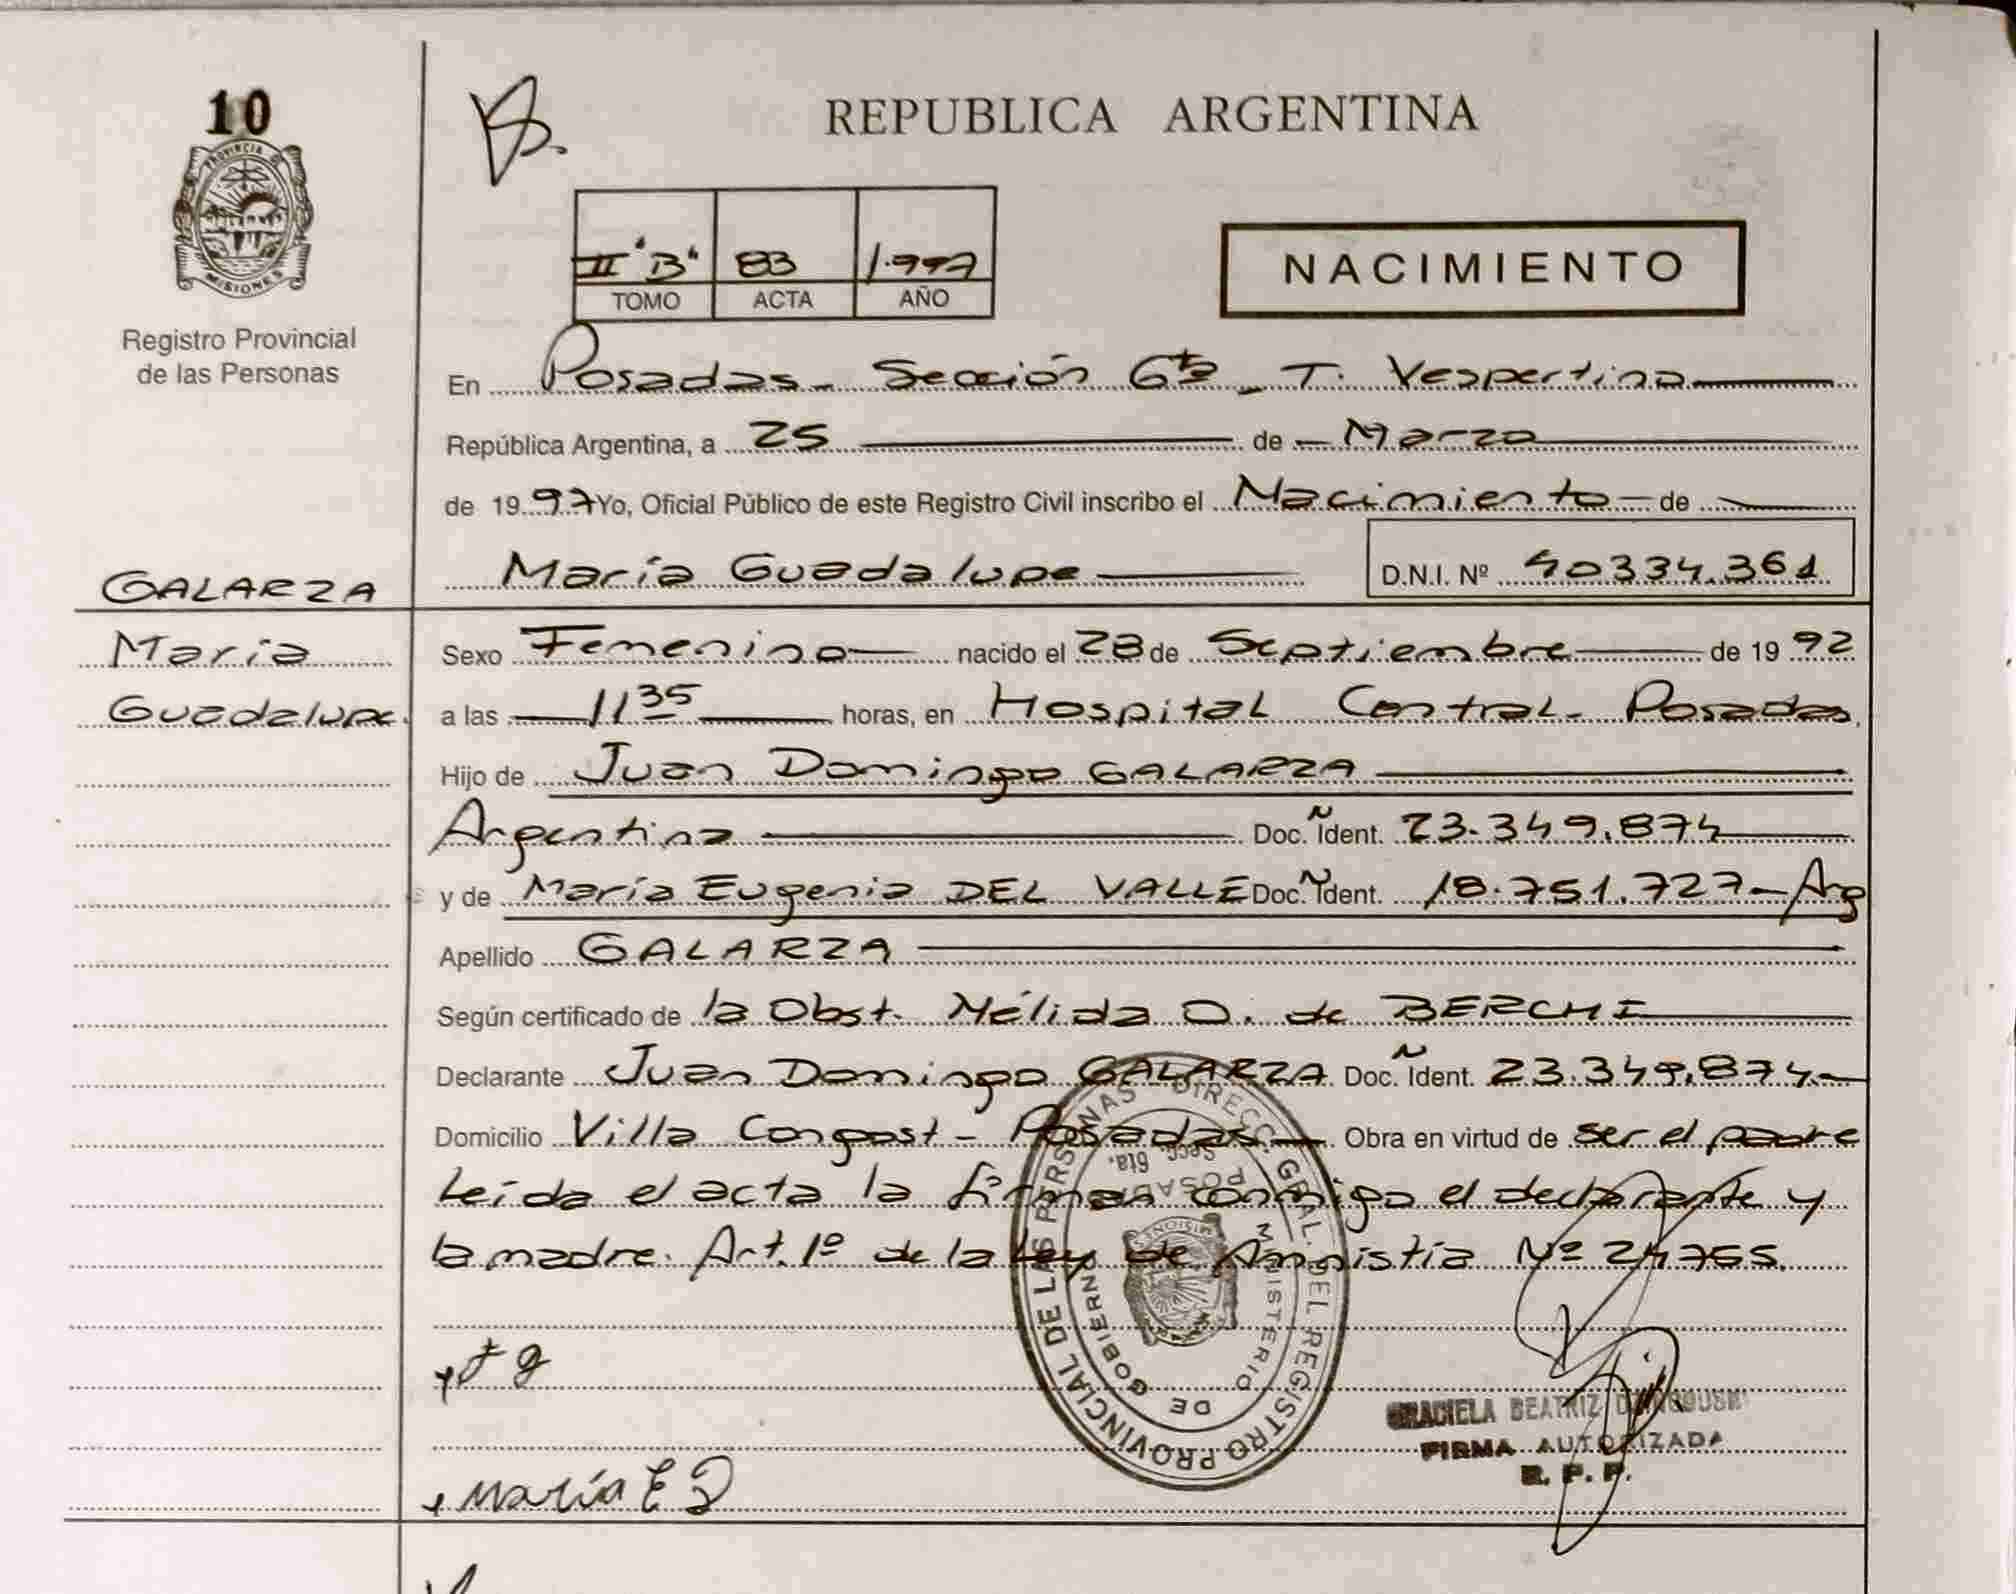 10
PROVINCIA DE
MISIONES
Registro Provincial
de las Personas
REPUBLICA ARGENTINA
II "B" 83 1.997
TOMO ACTA AÑO
NACIMIENTO
En Posadas - Sección 6ta - T. Vespertina
República Argentina, a 25 de Marzo
de 1997 Yo, Oficial Público de este Registro Civil inscribo el Nacimiento de
María Guadalupe D.N.I. Nº 40334.361
GALARZA
María
Guadalupe.
Sexo Femenino nacido el 28 de Septiembre de 1992
a las 11 35 horas, en Hospital Central - Posadas
Hijo de Juan Domingo GALARZA
Argentina Doc. Ident. 23.349.874
y de María Eugenia DEL VALLE Doc. Ident. 18.751.727 - Arg
Apellido GALARZA
Según certificado de la Obst. Nélida O. de BERCHI
Declarante Juan Domingo GALARZA Doc. Ident. 23.349.874 -
Domicilio Villa Congost - Posadas - Obra en virtud de ser el padre
Leída el acta la firman conmigo el declarante y
la madre. Art. 1º de la Ley de Aministía Nº 24755.
DIRECC. GRAL. DEL REGISTRO PROVINCIAL DE LAS PERSONAS
MINISTERIO DE GOBIERNO
Secc. 6ta.
POSADAS
MISIONES
GRACIELA BEATRIZ
FIRMA AUTORIZADA
R. P. P.
María E